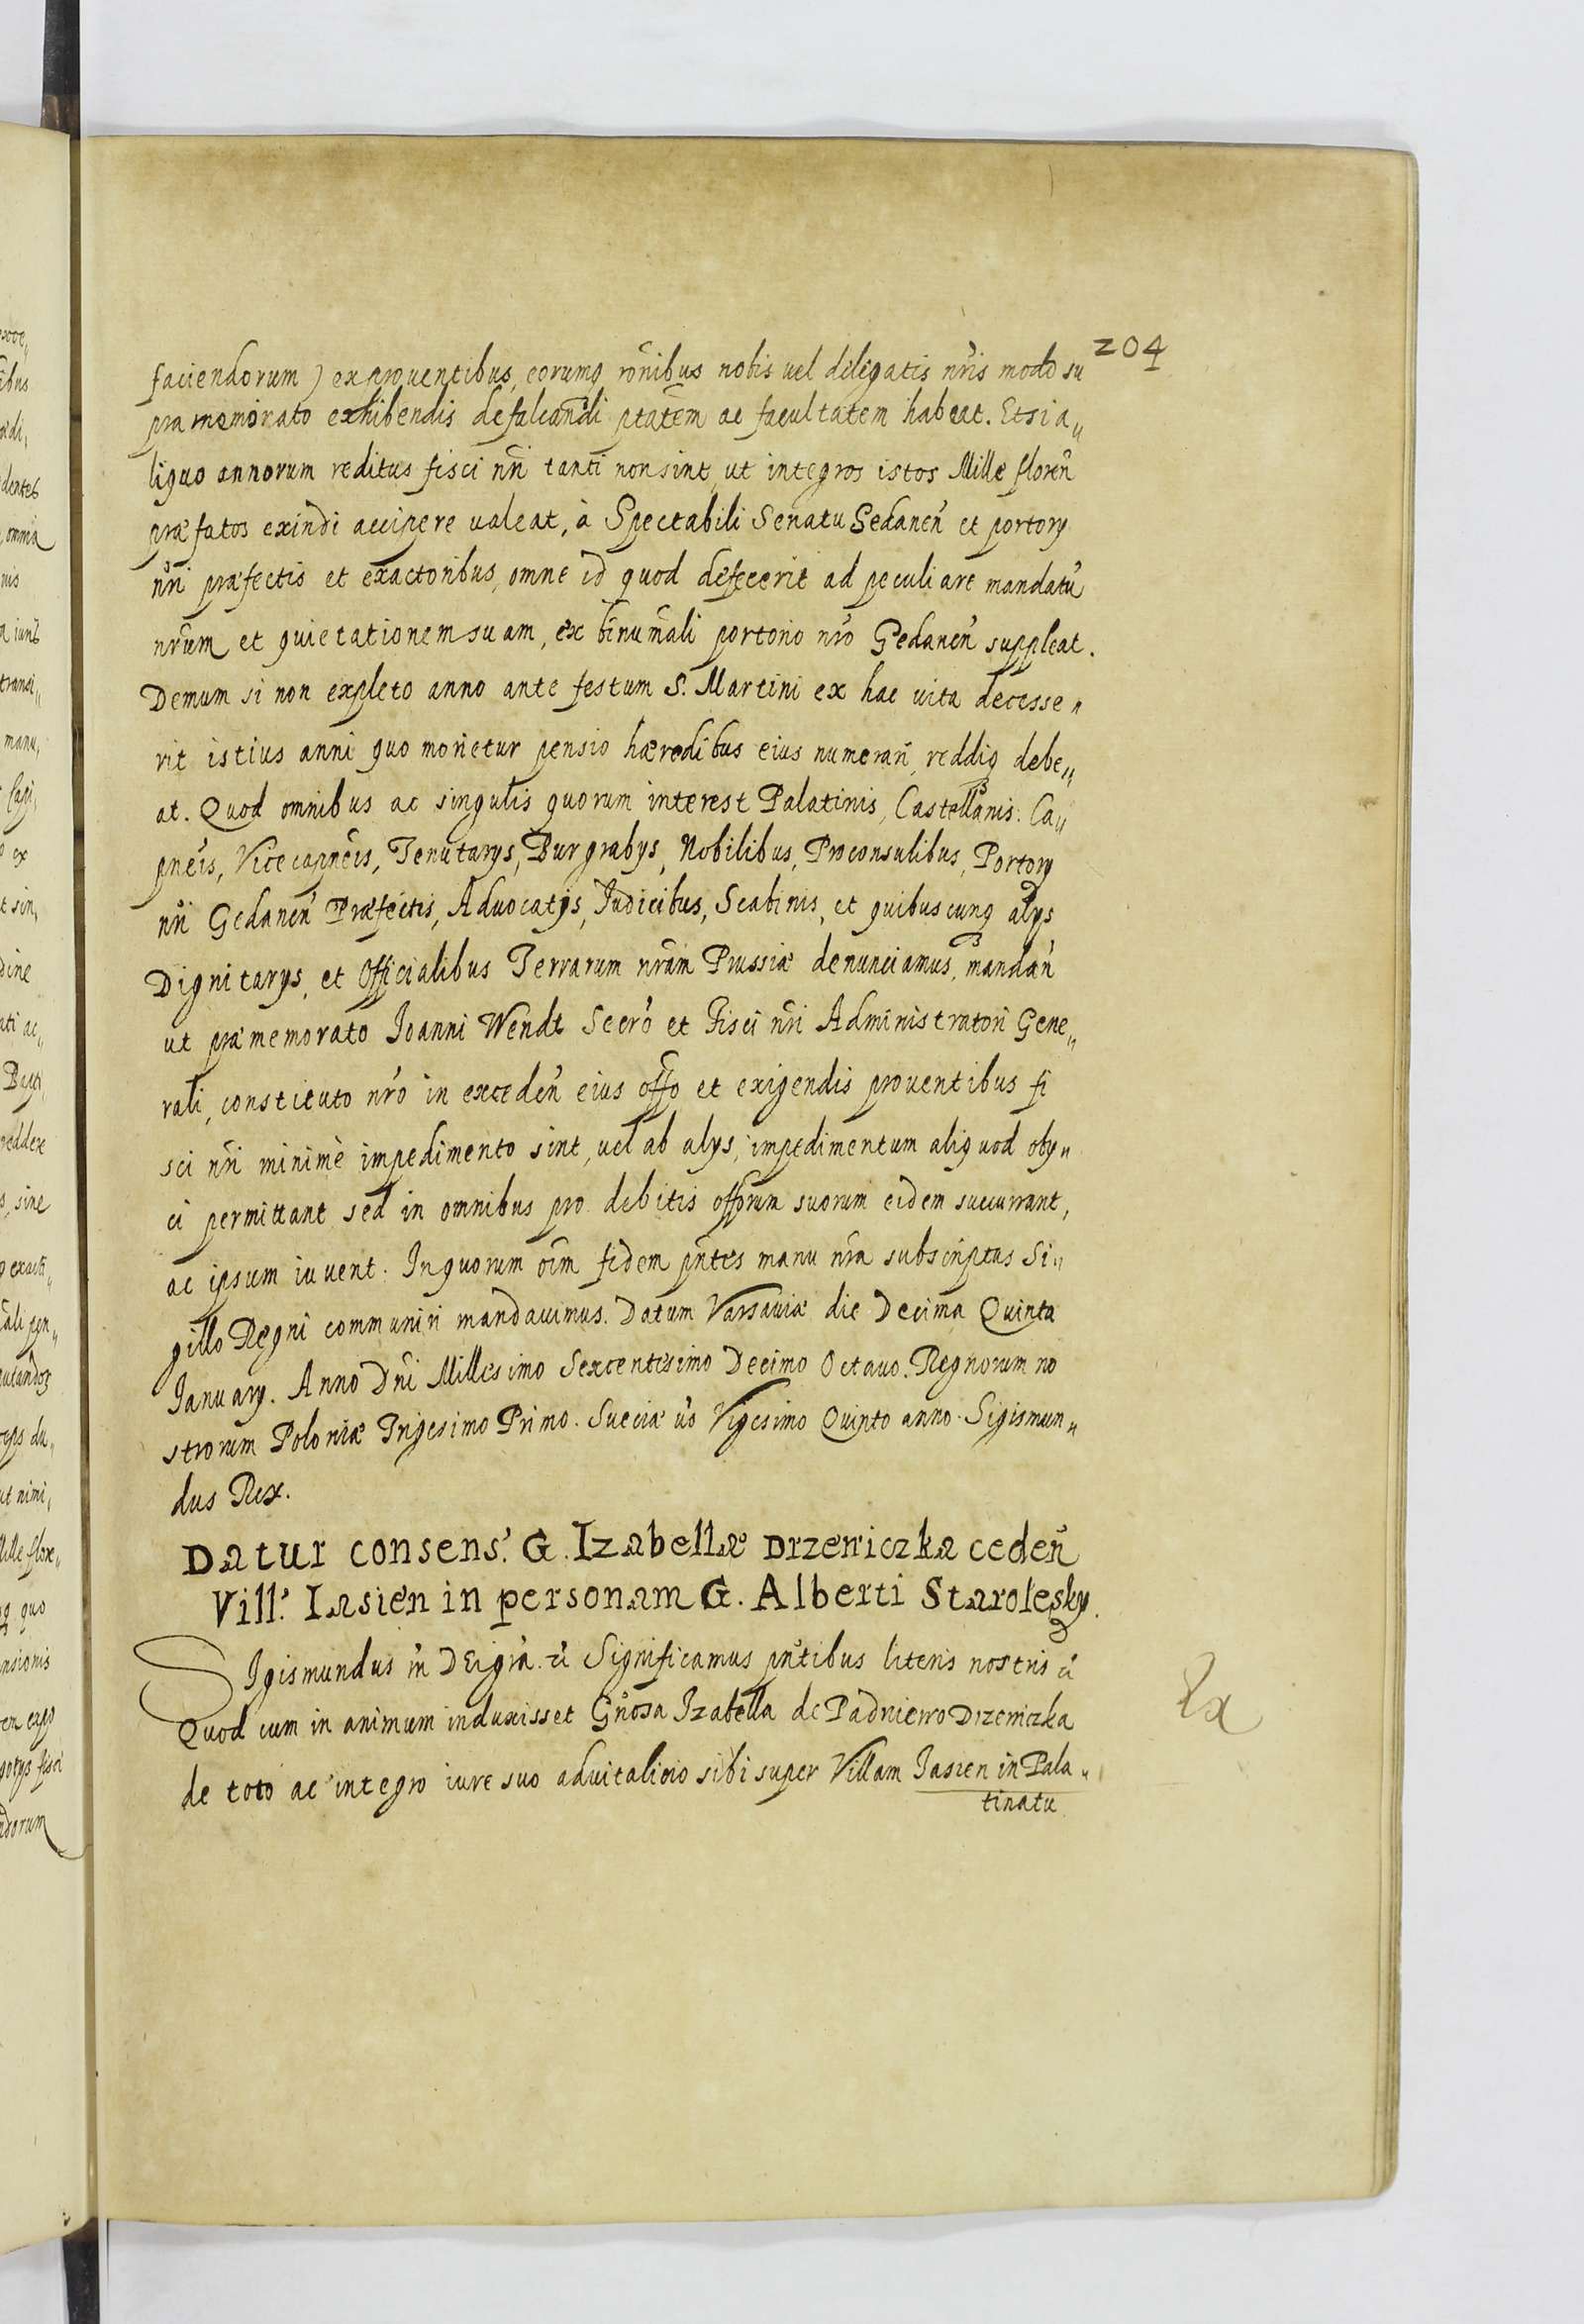 204
faciendorum) ex prouentibus, eorumq rõnibus nobis uel delegatis nr̃is modo su
pra memorato exhibendis defalcandi ptatem ac facultatem habeat. Et si a„
liquo annorum reditus fisci nr̃i tanti non sint, ut integros istos Mille floreñ
præfatos exindi accipere ualeat, à Spectabili Senatu Gedaneñ et portory
nr̃i præfectis et exactoribus, omne id quod defecerit ad peculiare mandatũ
nr̃um et quietationem suam, ex portorio nr̃o Gedaneñ suppleat.
Demum si non expleto anno ante festum S. Martini ex hac uita decesse„
rit istius anni quo morietur pensio hæredibus eius numerari, reddiq debe„
at. Quod omnibus ac singulis quorum interest Palatinis, Castellanis. Ca„
pneis, Vicecapneis, Tenutarys, Burgrabys, Nobilibus, Proconsulibus, Portory
nr̃i Gedaneñ Præfectis, Aduocatys, Iudicibus, Scabinis, et quibuscunq alys
Dignitarys, et Officialibus Terrarum nr̃am Prussiæ denunciamus, mandañ
ut præmemorato Ioanni Wendt Secr̃o et Fisci nr̃i Administratori Gene„
rali, constituto nr̃o in excedeñ eius offo et exigendis prouentibus fi
sci nr̃i minimè impedimento sint, uel ab alys, impedimentum aliquod oby„
ci permittant sed in omnibus pro debitis offorum suorum eidem succurrant,
ac ipsum iuvent. In quorum oĩm fidem pñtes manu nr̃a subscriptas Si„
gillo Regni communiri mandauimus. Datum Varsauiæ die Decima Quinta
Ianuary. Anno Dñi Millesimo Sexcentesimo Decimo Octauo. Regnorum no
strorum Poloniæ Trigesimo Primo. Sueciæ ũo Vigesimo Quinto anno. Sigismun„
dus Rex.
Datur consens. G. Izabellæ Drzewiczka cedeñ
Vill. Iasień in personam G. Alberti Starolesky.
Sigismundus Dei gr̃a Significamus pñtibus literis nostris
Quod cum in animum induxisset Gñosa Izabella de Padniewo Drzewiczka
de toto ac integro iure suo aduitalicio sibi super Villam Jasien in Pala„
tinatu